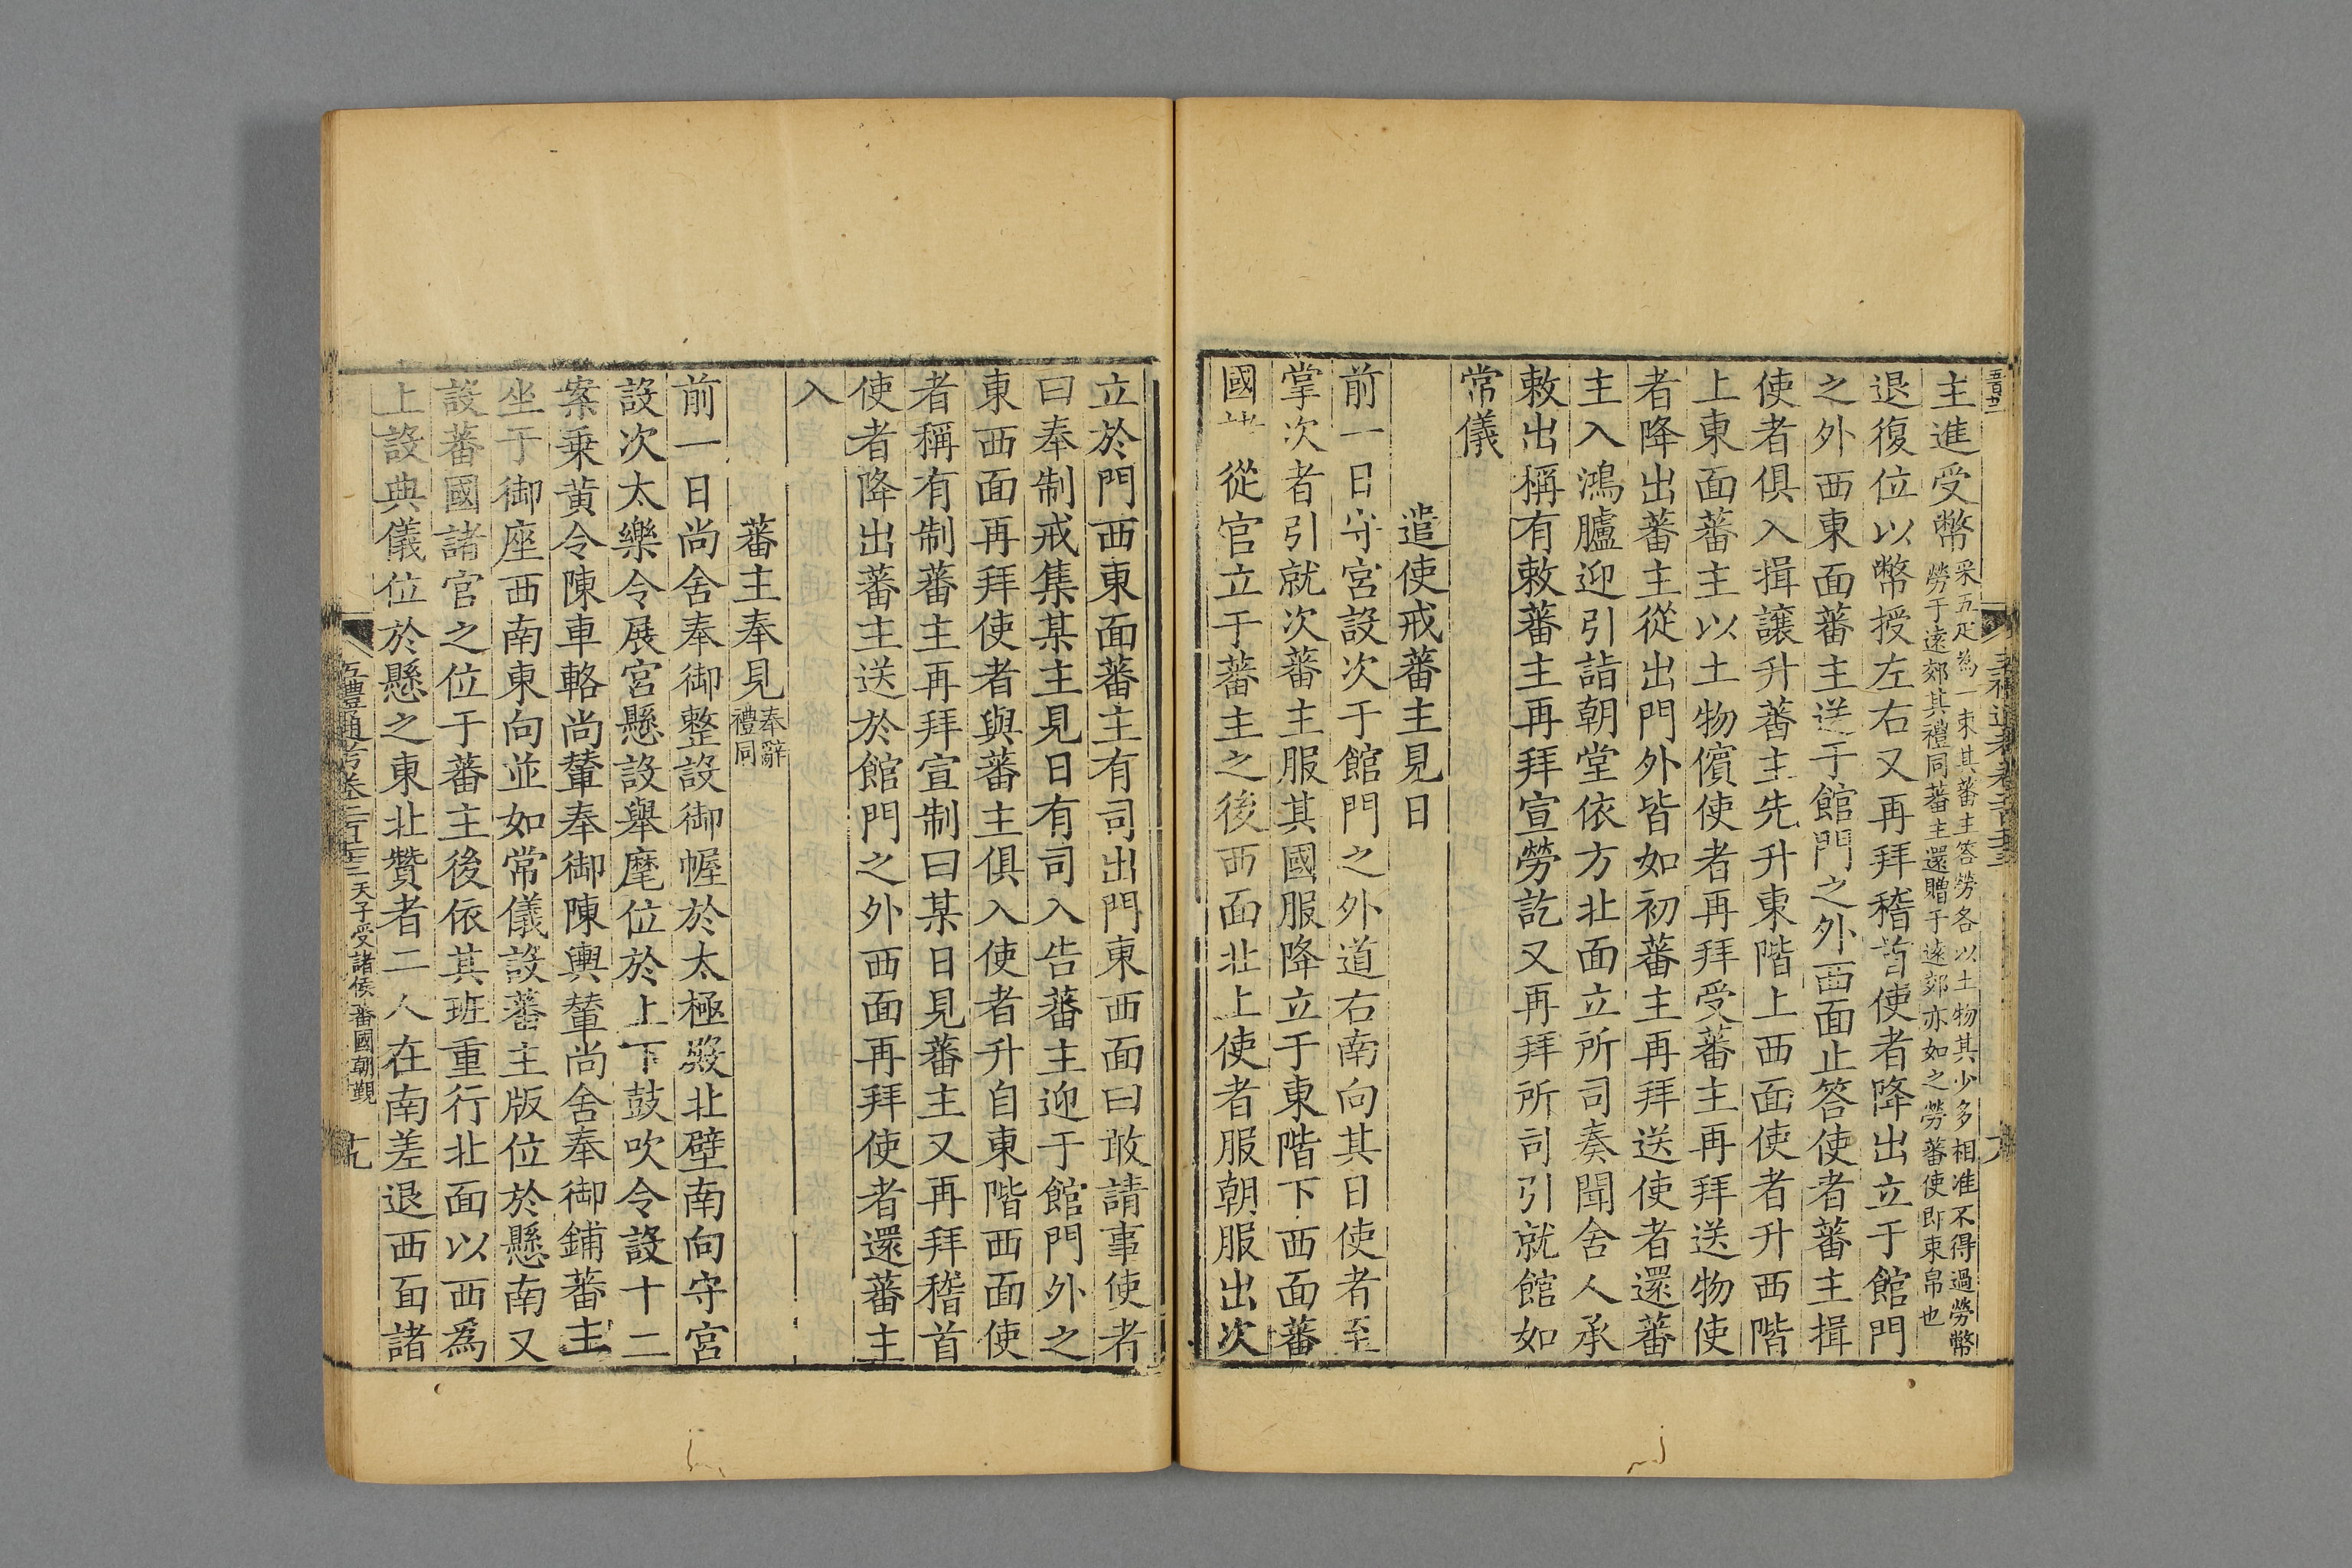 主進受幣采五疋為一束其蕃主答勞各以土物其少多相准不得過勞幣
勞于遠郊其禮同蕃主還贈于遠郊亦如之勞蕃使即束帛也
退復位以幣授左右又再拜稽首使者降出立于館門
之外西東面蕃主送于館門之外西面止答使者蕃主揖
使者俱入揖讓升蕃主先升東階上西面使者升西階
上東面蕃主以土物儐使者再拜受蕃主再拜送物使
者降出蕃主從出門外皆如初蕃主再拜送使者還蕃
主入鴻臚迎引詣朝堂依方北面立所司奏聞舍人承
敕出稱有敕蕃主再拜宣勞訖又再拜所司引就館如
常儀
遣使戒蕃主見日
前一日守宮設次于館門之外道右南向其日使者至
掌次者引就次蕃主服其國服降立于東階下西面蕃
國 從官立于蕃主之後西面北上使者服朝服出次
立於門西東面蕃主有司出門東西面曰敢請事使者
曰奉制戒集某主見日有司入告蕃主迎于館門外之
東西面再拜使者與蕃主俱入使者升自東階西面使
者稱有制蕃主再拜宣制曰某日見蕃主又再拜稽首
使者降出蕃主送於館門之外西面再拜使者還蕃主
入
蕃主奉見奉辭
禮同
前一日尚舍奉御整設御幄於太極殿北壁南向守宮
設次太樂令展宮懸設舉麾位於上下鼓吹令設十二
案乗黄令陳車輅尚輦奉御陳輿輦尚舍奉御鋪蕃主
坐于御座西南東向並如常儀設蕃主版位於懸南又
設蕃國諸官之位于蕃主後依其班重行北面以西爲
上設典儀位於懸之東北贊者二人在南差退西面諸
五禮通考卷二百二十三天子受諸侯蕃國朝覲 十九